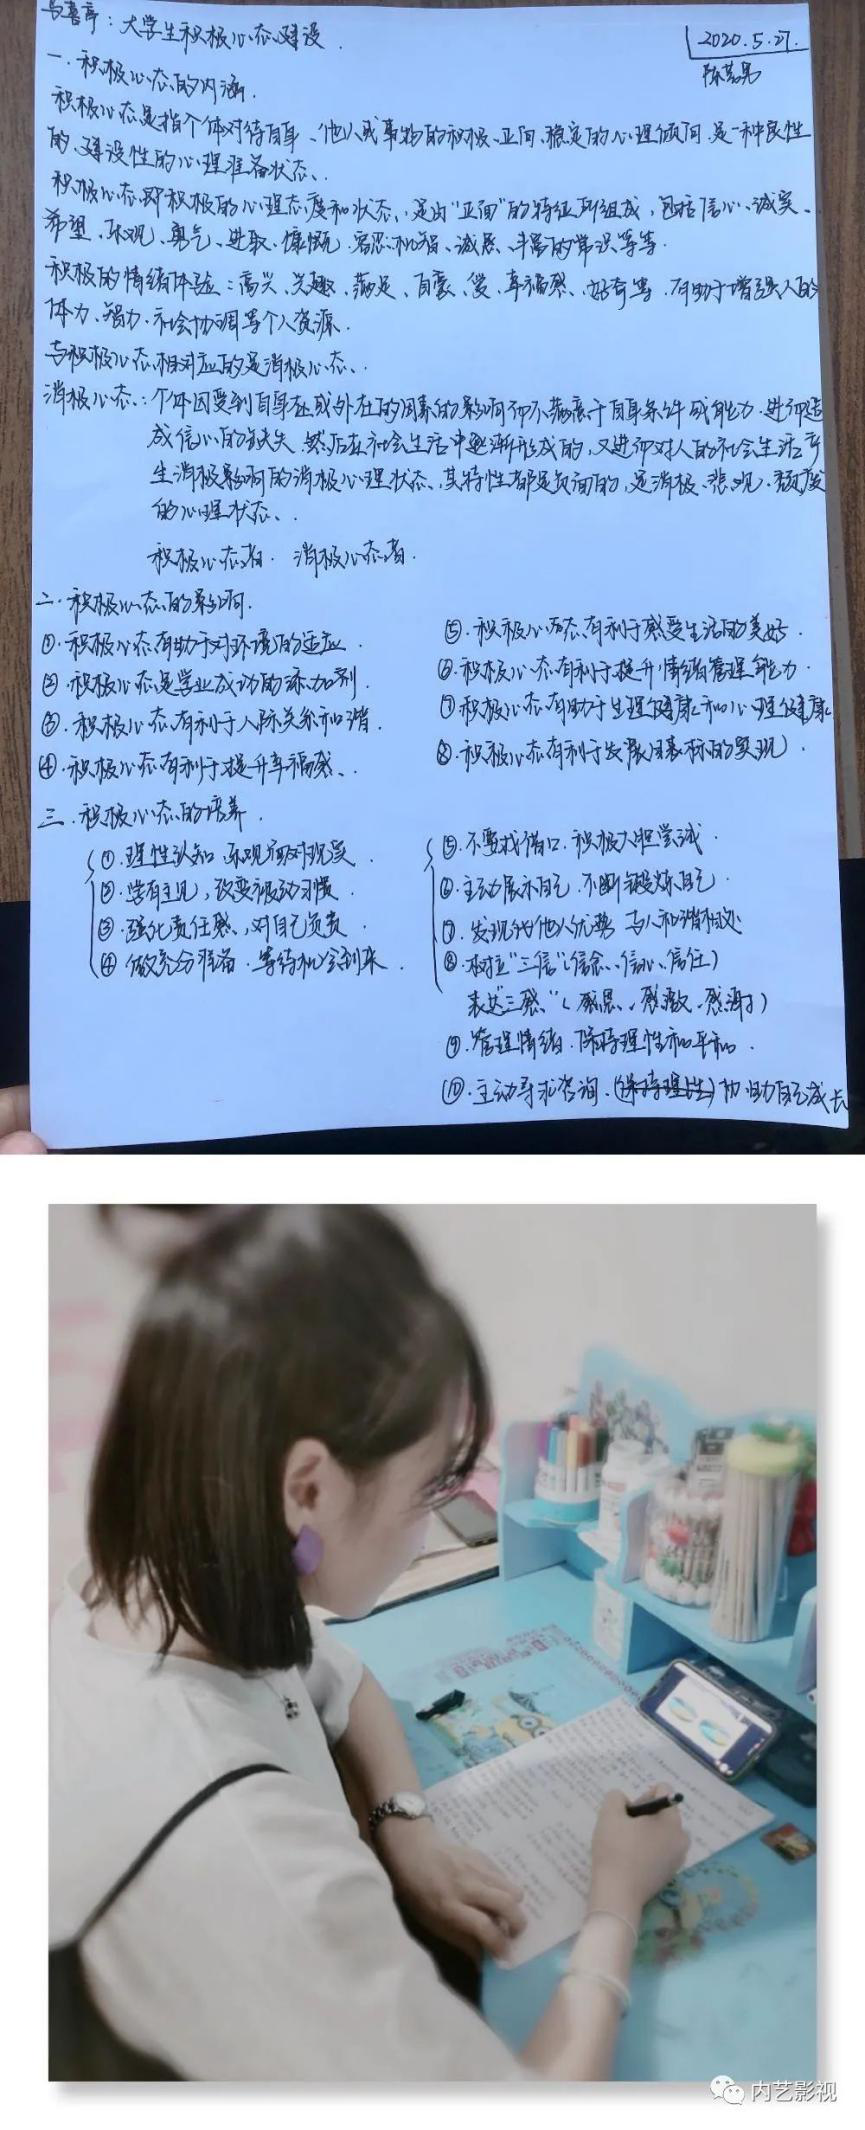 马喜亭：大学生积极心态建设.
2020.5.27.
一.积极心态的内涵.
积极心态是指个体对待自身、他人或事物的积极、正向、稳定的心理倾向,是一种良性
的、建设性的心理准备状态、.
积极心态即积极的心理态度和状态、,是由"正面"的特征所组成,包括信心、诚实、
希望、乐观、勇气、进取、慷慨、容忍、机智、诚恳、丰富的常识等等.
积极的情绪体验：高兴、兴趣、满足、自豪、爱、幸福感、好奇等,有助于增强人的
体力、智力、社会协调等个人资源.
与积极心态相对应的是消极心态、.
消极心态、：个体因受到自身在或外在的因素的影响而不满意于自身条件或能力,进而造
成信心的缺失,然后在社会生活中逐渐形成的,又进而对人的社会生活产
生消极影响的消极心理状态、,其特性都是负面的,是消极、悲观、颓废
的心理状态、.
积极心态者. 消极心态者.
二.积极心态的影响.
①.积极心态有助于对环境的适应.
②.积极心态是学业成功的添加剂.
③.积极心态有利于人际关系和谐.
④.积极心态有利于提升幸福感、.
⑤.积极心态有利于感受生活的美好.
⑥.积极心态有利于提升情绪管理能力.
⑦.积极心态有助于生理健康和心理健康.
⑧.积极心态有利于发展目标的实现.
三.积极心态的培养.
①.理性认知,乐观面对现实.
②.学有主见,改变被动习惯.
③.强化责任感,对自己负责.
④.做充分准备,等待机会到来.
⑤.不要找借口,积极大胆尝试.
⑥.主动展示自己,不断锻炼自己.
⑦.发现他人优势,与人和谐相处
⑧.树立"三信"(信念、信心、信任)
表达"三感"(感恩、感激、感谢)
⑨.管理情绪,保持理性和平和.
⑩.主动寻求咨询.(保持理性)协助自己成长
内艺影视